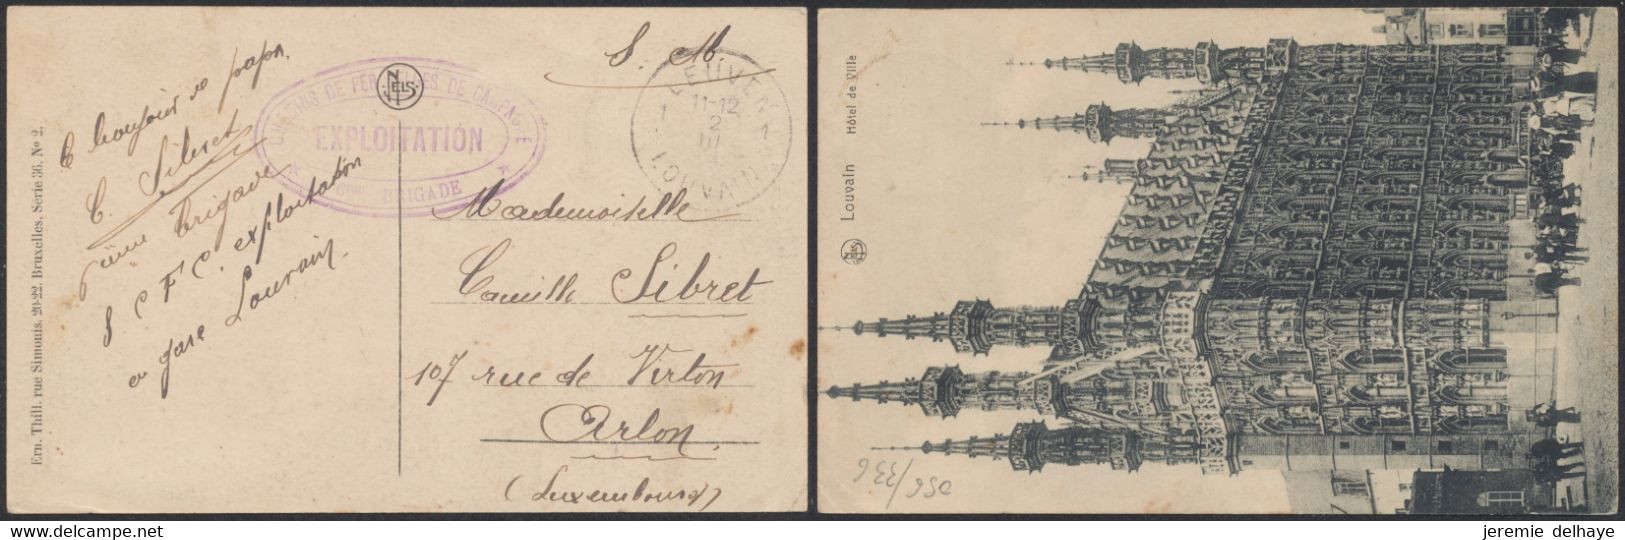 Ern. Thill, rue Simonis, 20-22, Bruxelles. Série 36. No 2.
bonjour de papa,
C. Sibret
6ième Brigade
S C F C exploitation
gare Louvain.
NELS
CHEMINS DE FER BELGES DE CAMPAGNE
EXPLOITATION
6me BRIGADE
S. M.
LEUVEN
1 11-12 1
2
III
LOUVAIN
Mademoiselle
Camille Sibret
107 rue de Virton
Arlon.
(Luxembourg)
NELS
Louvain Hôtel de Ville
056/336
jeremie delhaye